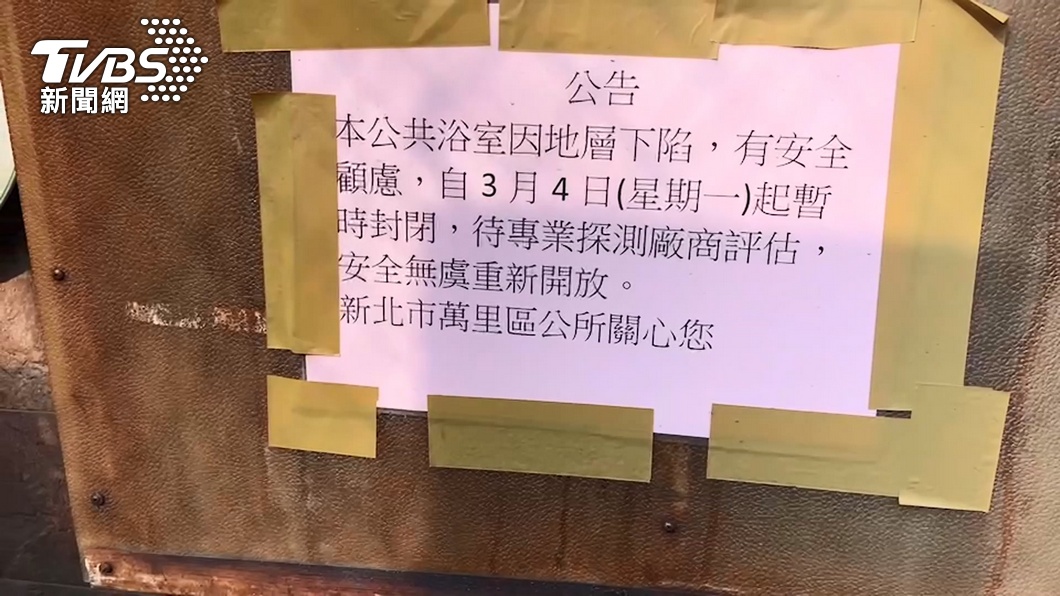 TVBS
新聞網
公告
本公共浴室因地層下陷，有安全
顧慮，自3月4日(星期一)起暫
時封閉，待專業探測廠商評估，
安全無虞重新開放。
新北市萬里區公所關心您